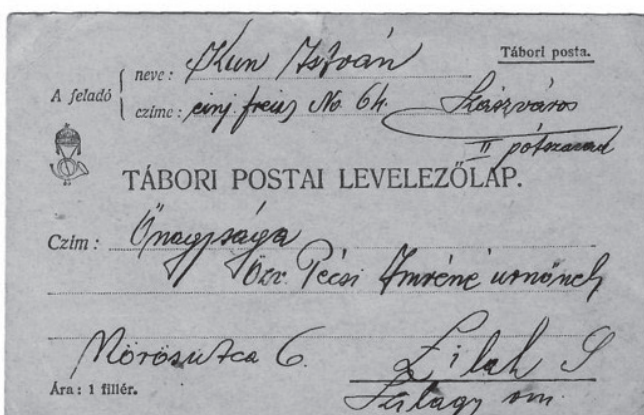 Tábori posta.
A feladó
neve: Kun István
czíme: einj. freiw. No. 64. Szászváros
II pótszázad
TÁBORI POSTAI LEVELEZŐLAP.
Czím: Őnagysága
Özv. Pécsi Imréné urnőnek
6.
Zilah
Szilágy vm.
Ára: 1 fillér.